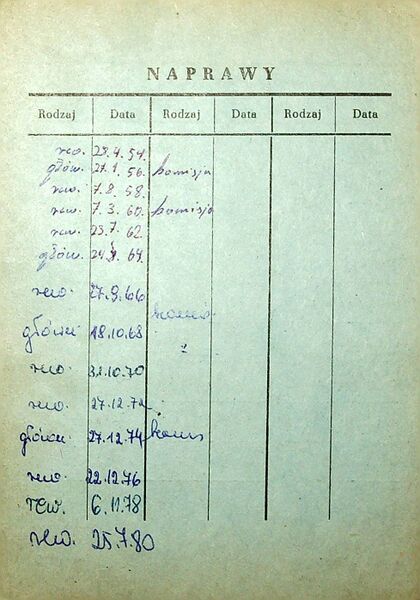 NAPRAWY
Rodzaj Data Rodzaj Data Rodzaj Data
rew. 23.4.54.
głów. 27.1.56. komisja
rew. 7.8.58.
rew. 7.3.60. komisja
rew. 23.7.62.
głów. 64.
rew. 27.9.66
komis
główn. 18.10.68
rew. 10.70
rew. 27.12.72
główn. 27.12.74 komis
rew. 22.12.76
rew. 6.11.78
rew. 25.7.80